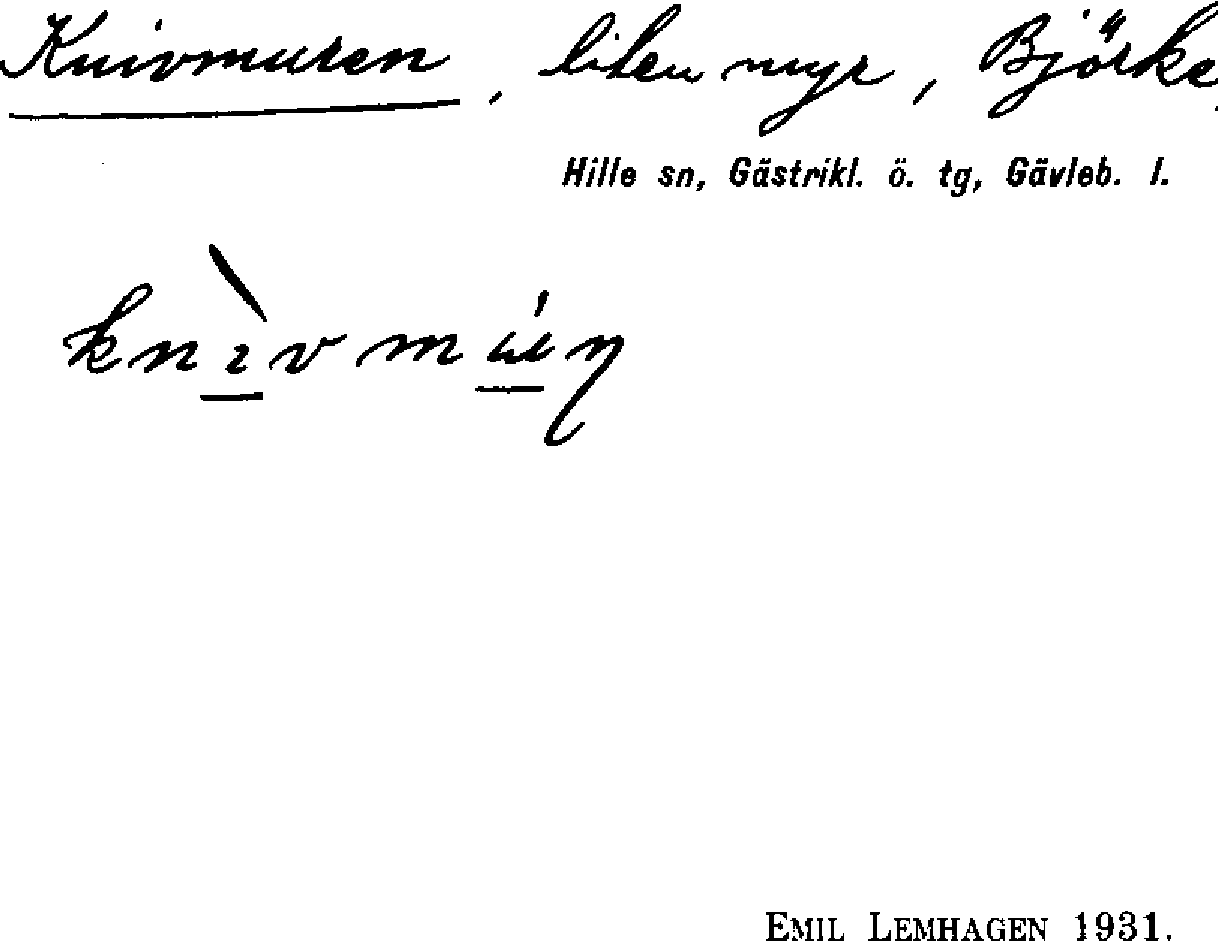 Knivmuren, liten myr, Björke,
Hille sn, Gästrikl. ö. tg, Gävleb. l.
EMIL LEMHAGEN 1931.